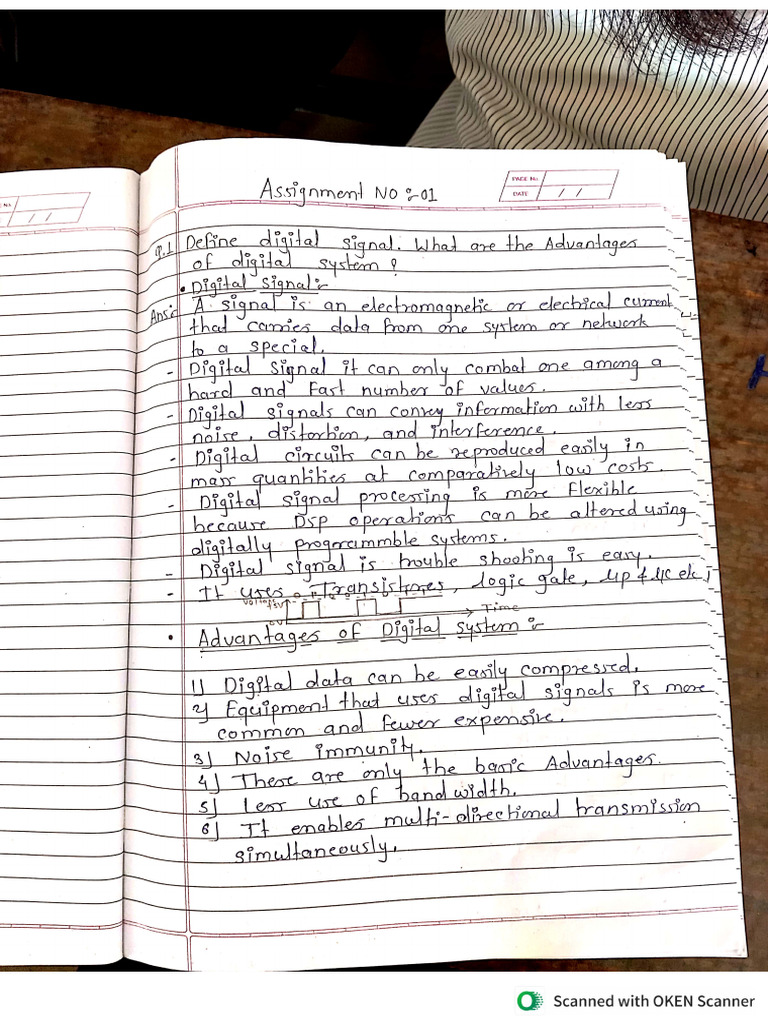 PAGE No.
DATE / /
Assignment No :- 01
Q.1 Define digital signal. What are the Advantages
of digital system?
• Digital Signal :-
Ans: A signal is an electromagnetic or electrical current
that carries data from one system or network
to a special.
- Digital Signal it can only combat one among a
hard and fast number of values.
- Digital signals can convey information with less
noise, distortion, and interference.
- Digital circuits can be reproduced easily in
mass quantities at comparatively low costs.
- Digital signal processing is more flexible
because DSP operations can be altered using
digitally programmble systems.
- Digital signal is trouble shooting is easy.
- It uses Transistores, logic gate, μp & μc etc
+5V
0V
Time
• Advantages of Digital System :-
1) Digital data can be easily compressed.
2) Equipment that uses digital signals is more
common and fewer expensive.
3) Noise immunity.
4) These are only the basic Advantages.
5) Less use of bandwidth.
6) It enables multi-directional transmission
simultaneously.
Scanned with OKEN Scanner